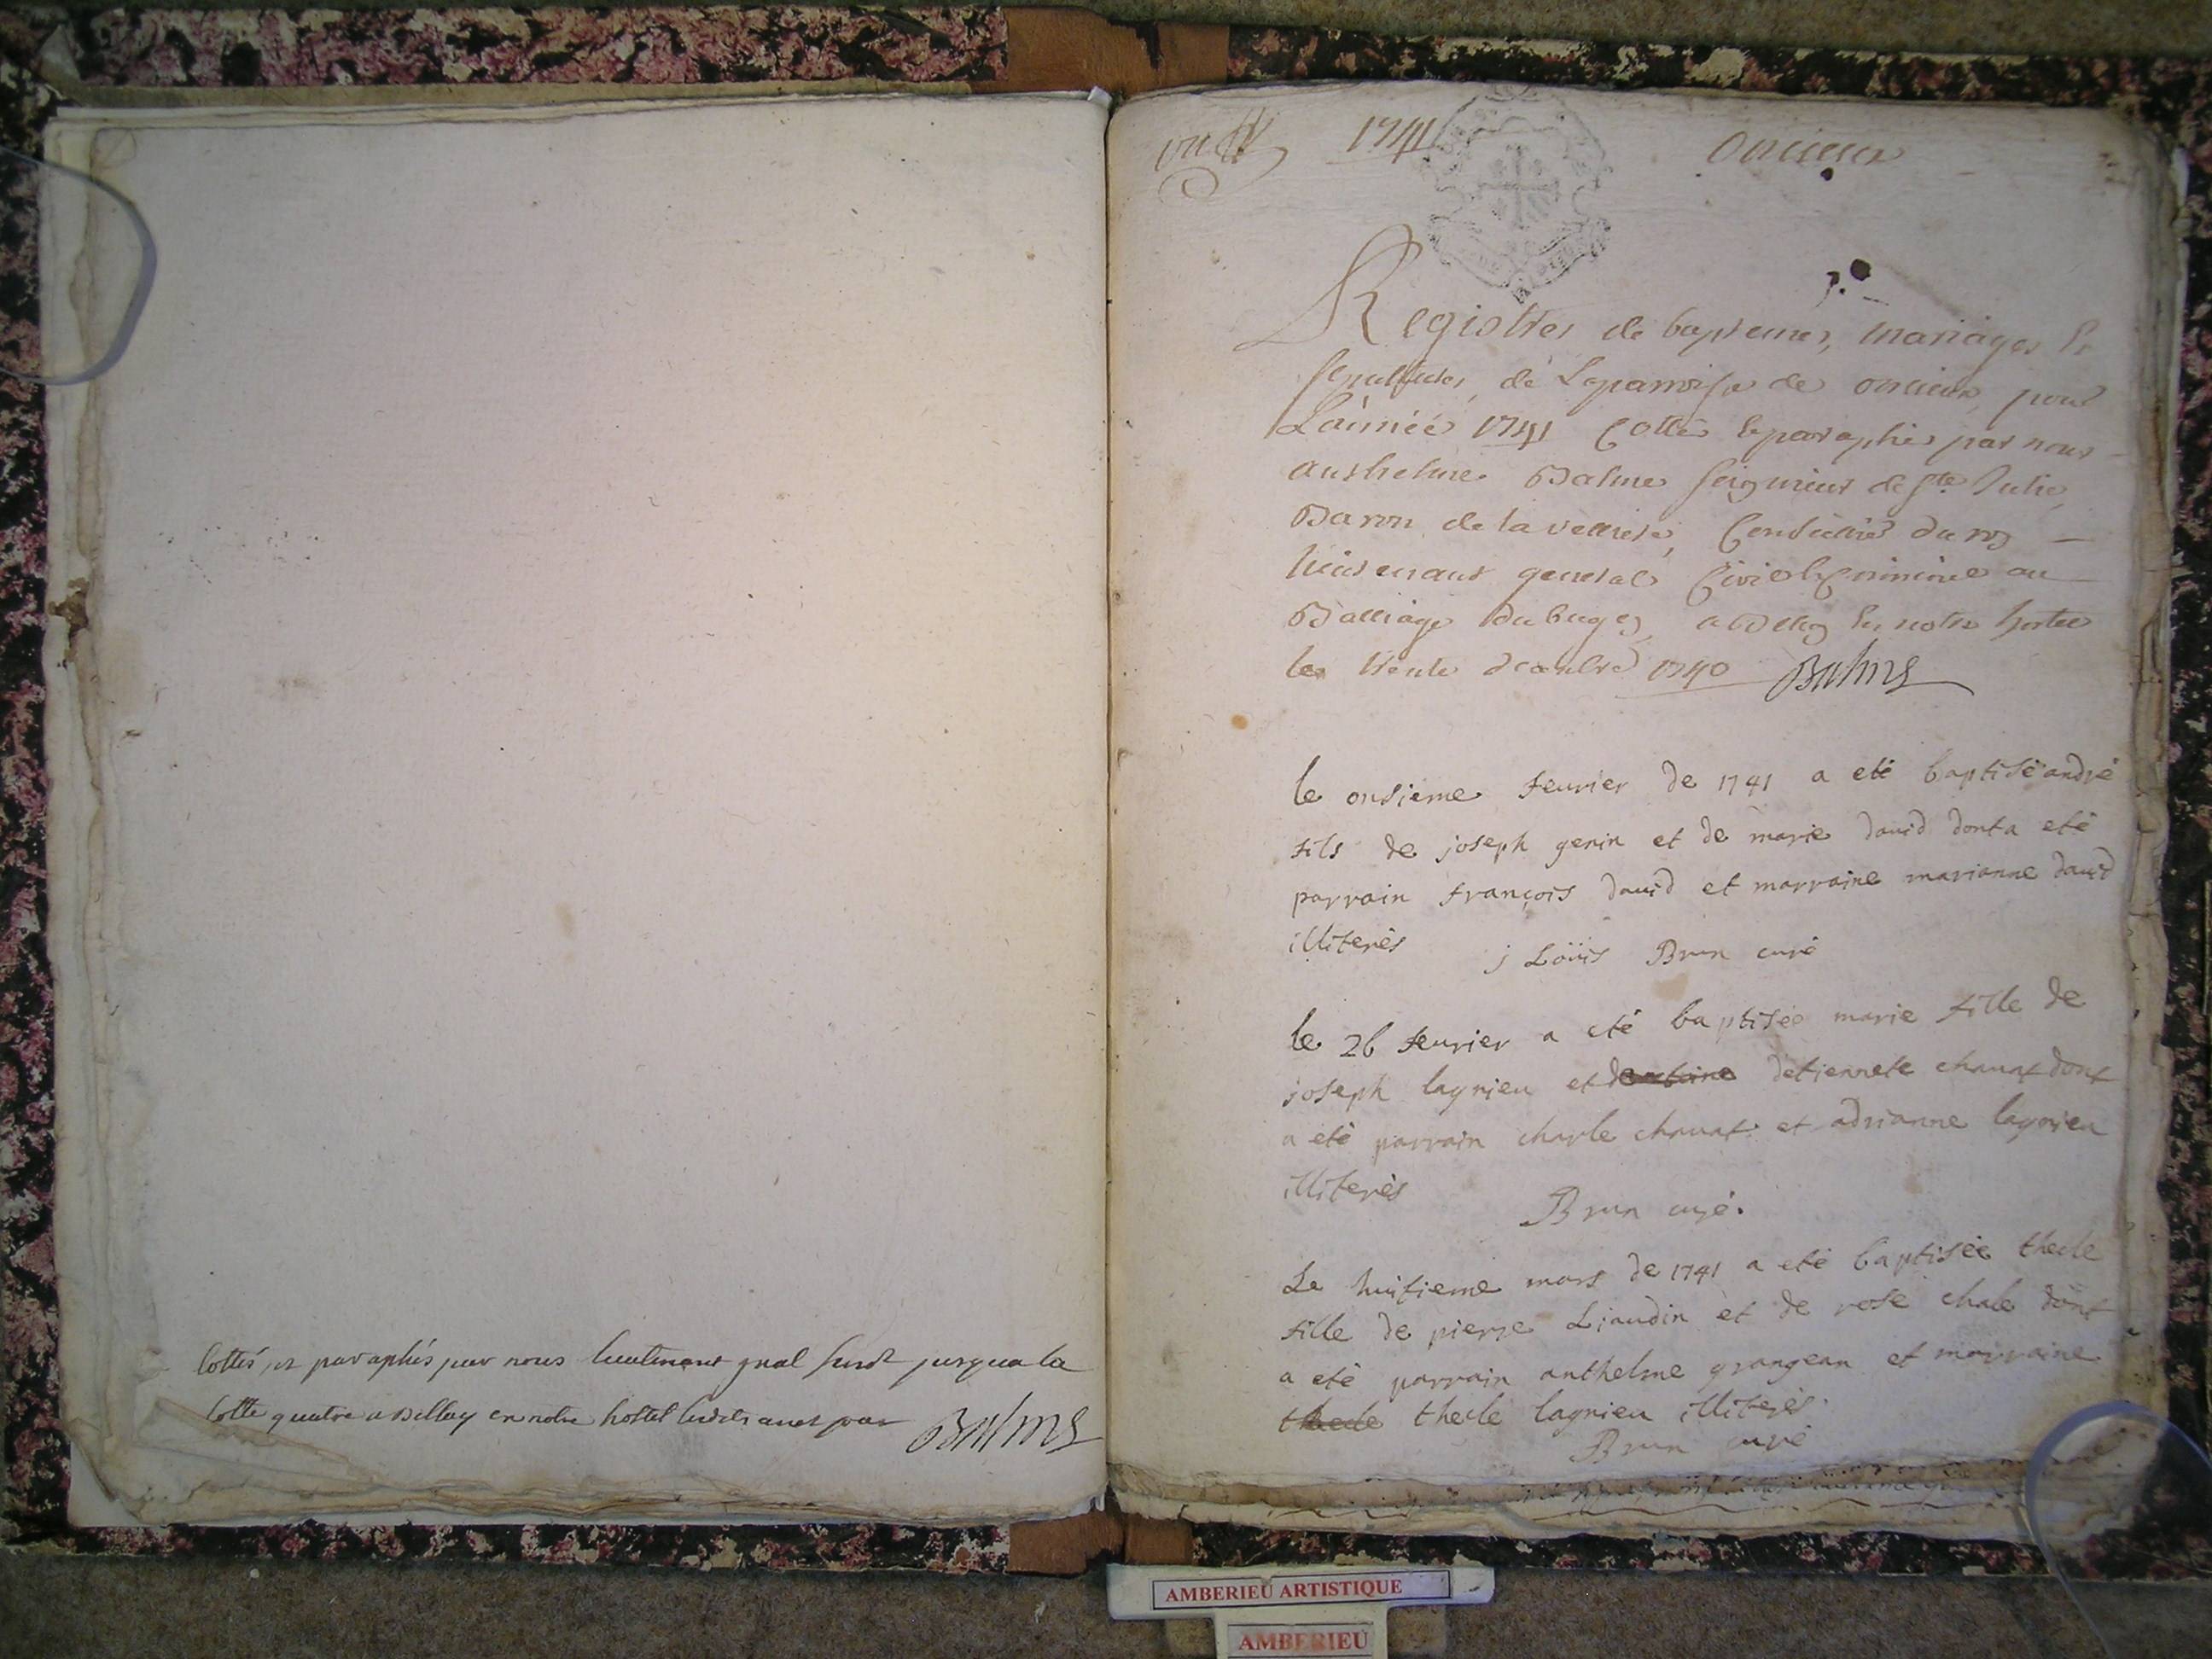 Cottés et paraphés par nous lieutenant gnal susdt jusqua la
cotte quatre a Belley en notre hostel lesdits an et jour Balme
un 1741 oncieux
p.o
Registres de baptemes, mariages et
sepultures, de La parroisse de oncieux, pour
L'année 1741 Cottés et paraphés par nous
anthelme Balme seigneur de ste Julie,
Baron de la velliere, Conseiller du roy
lieutenant general Civil et criminel au
Balliage du bugey, a Belley en notre hostel
le trente decembre 1740 Balme
le onsieme feurier de 1741 a eté baptisé andré
fils de joseph genin et de marie dauid dont a eté
parrain françois dauid et marraine marianne dauid
illiterés j Loüis Brun curé
le 26 feurier a eté baptisée marie fille de
joseph lagnieu et detiennete chauat dont
a eté parrain charle chauat et adrianne lagnieu
illiterés Brun curé.
Le huitieme mars de 1741 a eté baptisée thecle
fille de pierre Liaudin et de rose chale dont
a eté parrain anthelme grangean et marraine
thecle thecle lagnieu illiterés.
Brun curé
AMBERIEU ARTISTIQUE
AMBERIEU